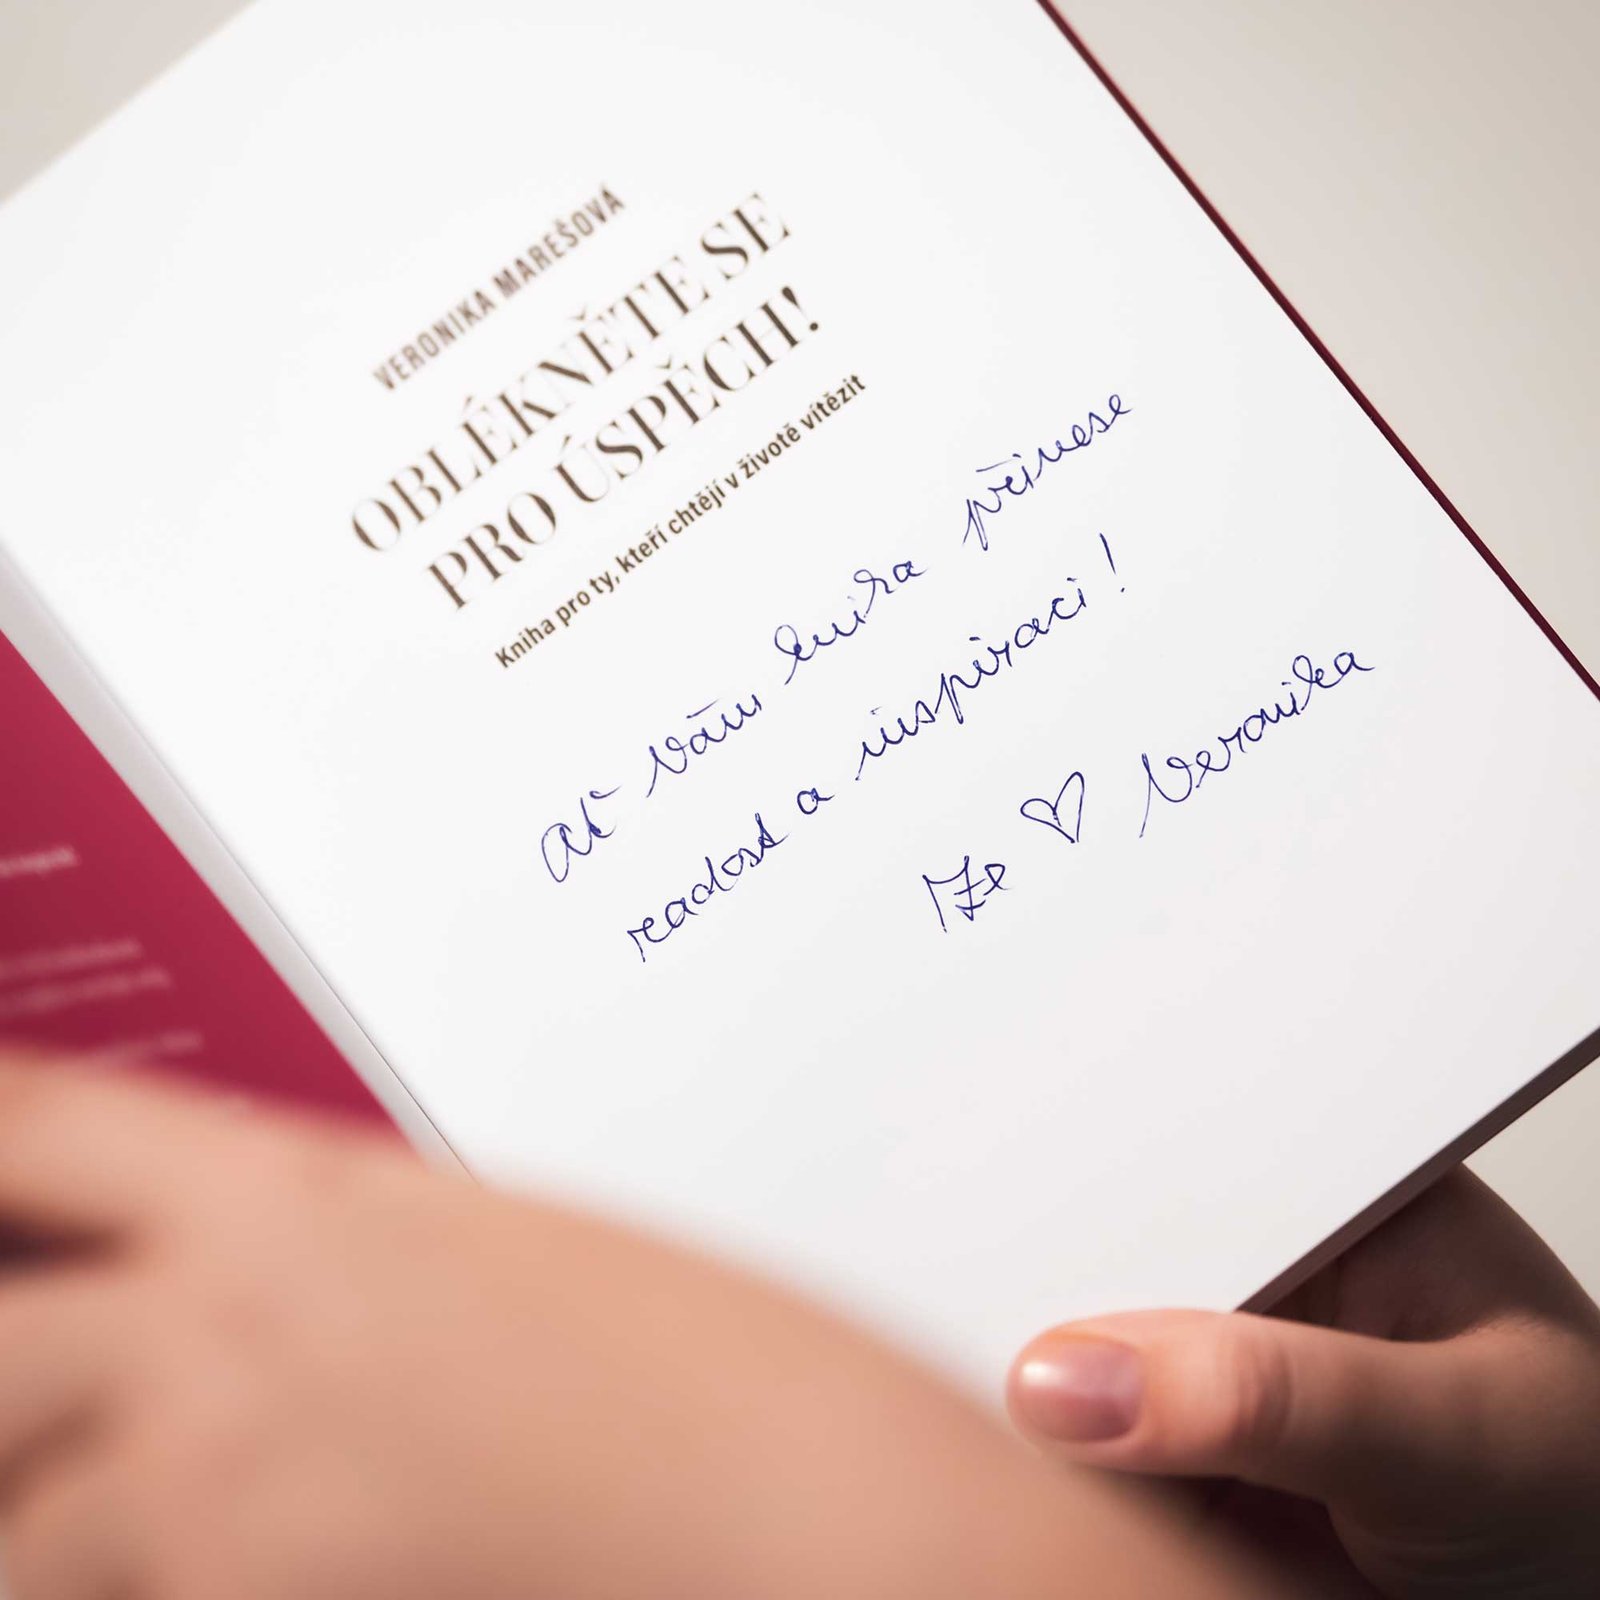 VERONIKA MAREŠOVÁ
OBLÉKNĚTE SE
PRO ÚSPĚCH!
Kniha pro ty, kteří chtějí v životě vítězit
Ať vám kniha přinese
radost a inspiraci!
Ze ♡ Veronika